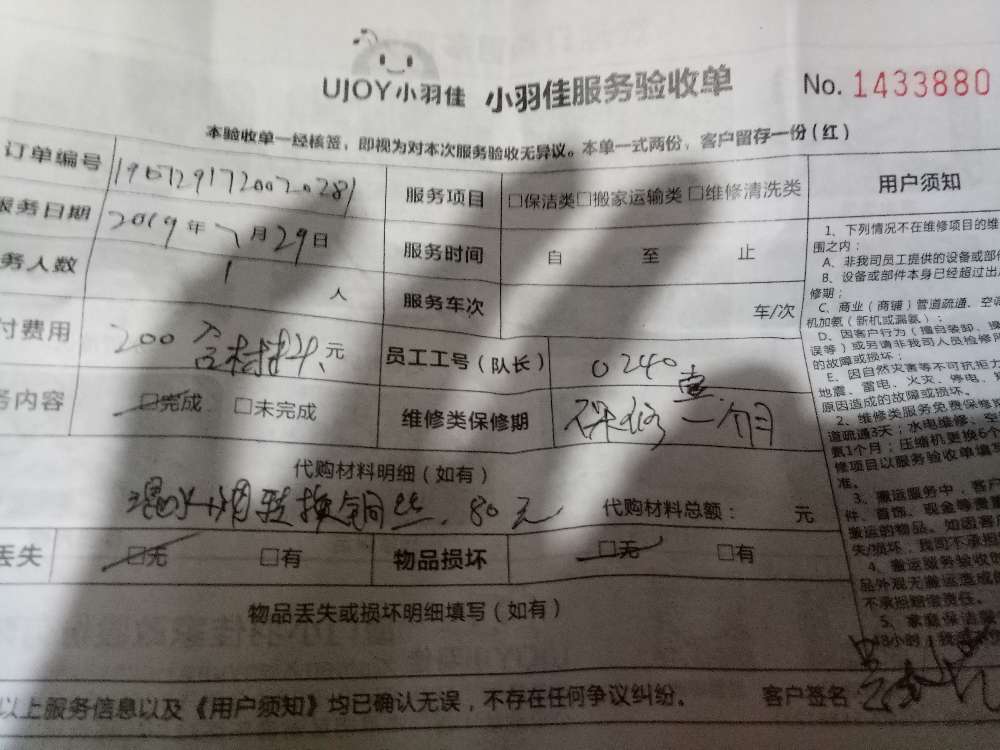 UJOY小羽佳 小羽佳服务验收单 No. 1433880
本验收单一经核签，即视为对本次服务验收无异议。本单一式两份，客户留存一份(红)
订单编号 服务项目 □保洁类□搬家运输类 □维修清洗类 用户须知
服务日期 2019年7月29日 服务时间 自 至 止
务人数 1 人 服务车次 车/次
付费用 200含材料 元 员工工号（队长） 0240
务内容 □完成 □未完成 维修类保修期 保修壹个月
代购材料明细（如有）
80元 代购材料总额： 元
丢失 □无 □有 物品损坏 □无 □有
物品丢失或损坏明细填写（如有）
以上服务信息以及《用户须知》均已确认无误，不存在任何争议纠纷。 客户签名
1、下列情况不在维修项目的维
围之内：
A、非我司员工提供的设备或部件
B、设备或部件本身已经超过出
修期；
C、商业（商铺）管道疏通、空
机加氨（新机或漏氨）；
D、因客户行为（擅自装卸、
误等）或另请非我司人员检修
的故障或损坏；
E、因自然灾害等不可抗拒力
地震、雷电、火灾、停电、
原因造成的故障或损坏。
2、维修类服务免费保修
道疏通3天；水电维修、空
氨1个月；压缩机更换6个
修项目以服务验收单填写
准。
3、搬运服务中，客户
件、首饰、现金等贵重
搬运的物品。如因客
失/损坏，我司不承担
4、搬运服务验收时
品外观无搬运造成
不承担赔偿责任。
5、家庭保洁服
48小时